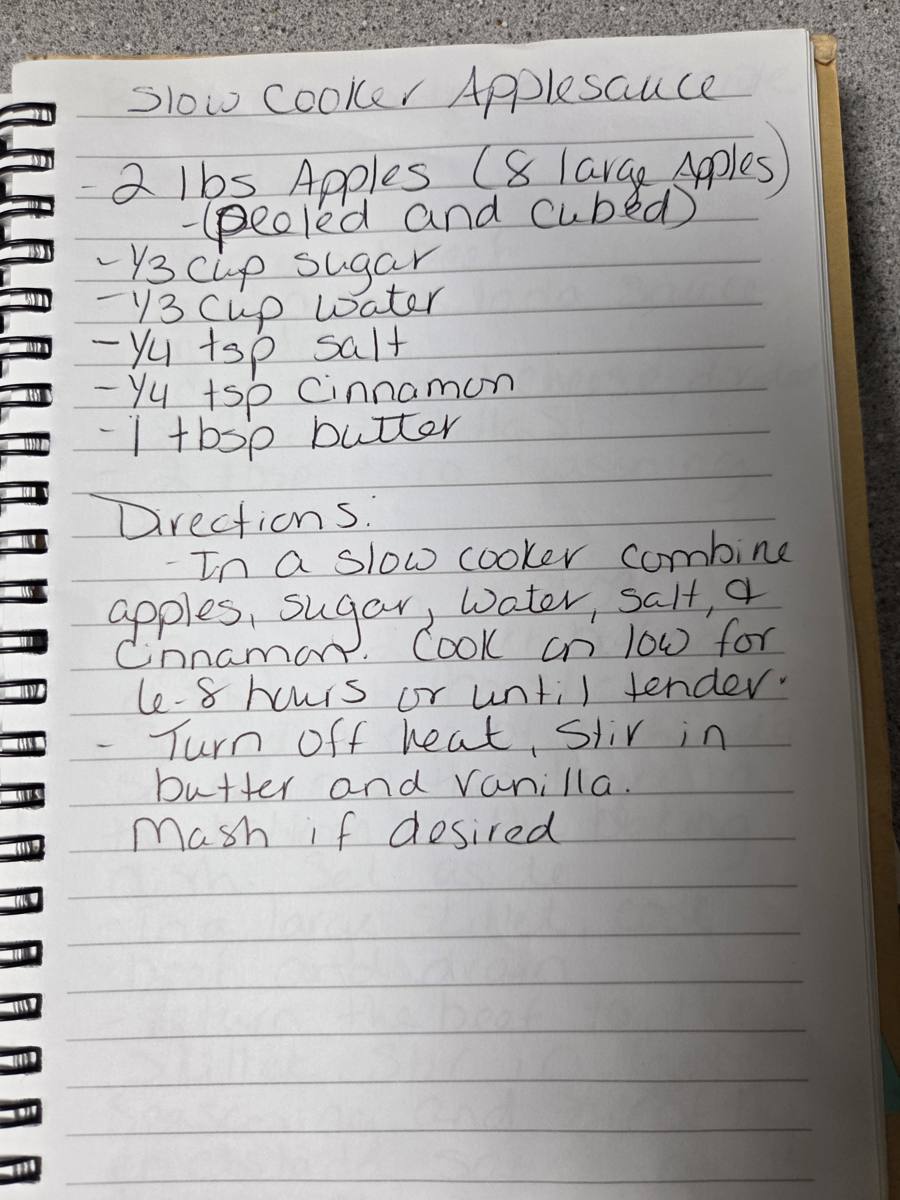 Slow Cooker Applesauce
- 2 lbs Apples (8 large Apples)
- (peeled and cubed)
- 1/3 cup sugar
- 1/3 cup water
- 1/4 tsp salt
- 1/4 tsp cinnamon
- 1 tbsp butter
Directions:
- In a slow cooker combine
apples, sugar, water, salt, &
Cinnamon. Cook on low for
6-8 hours or until tender.
- Turn off heat, Stir in
butter and vanilla.
Mash if desired